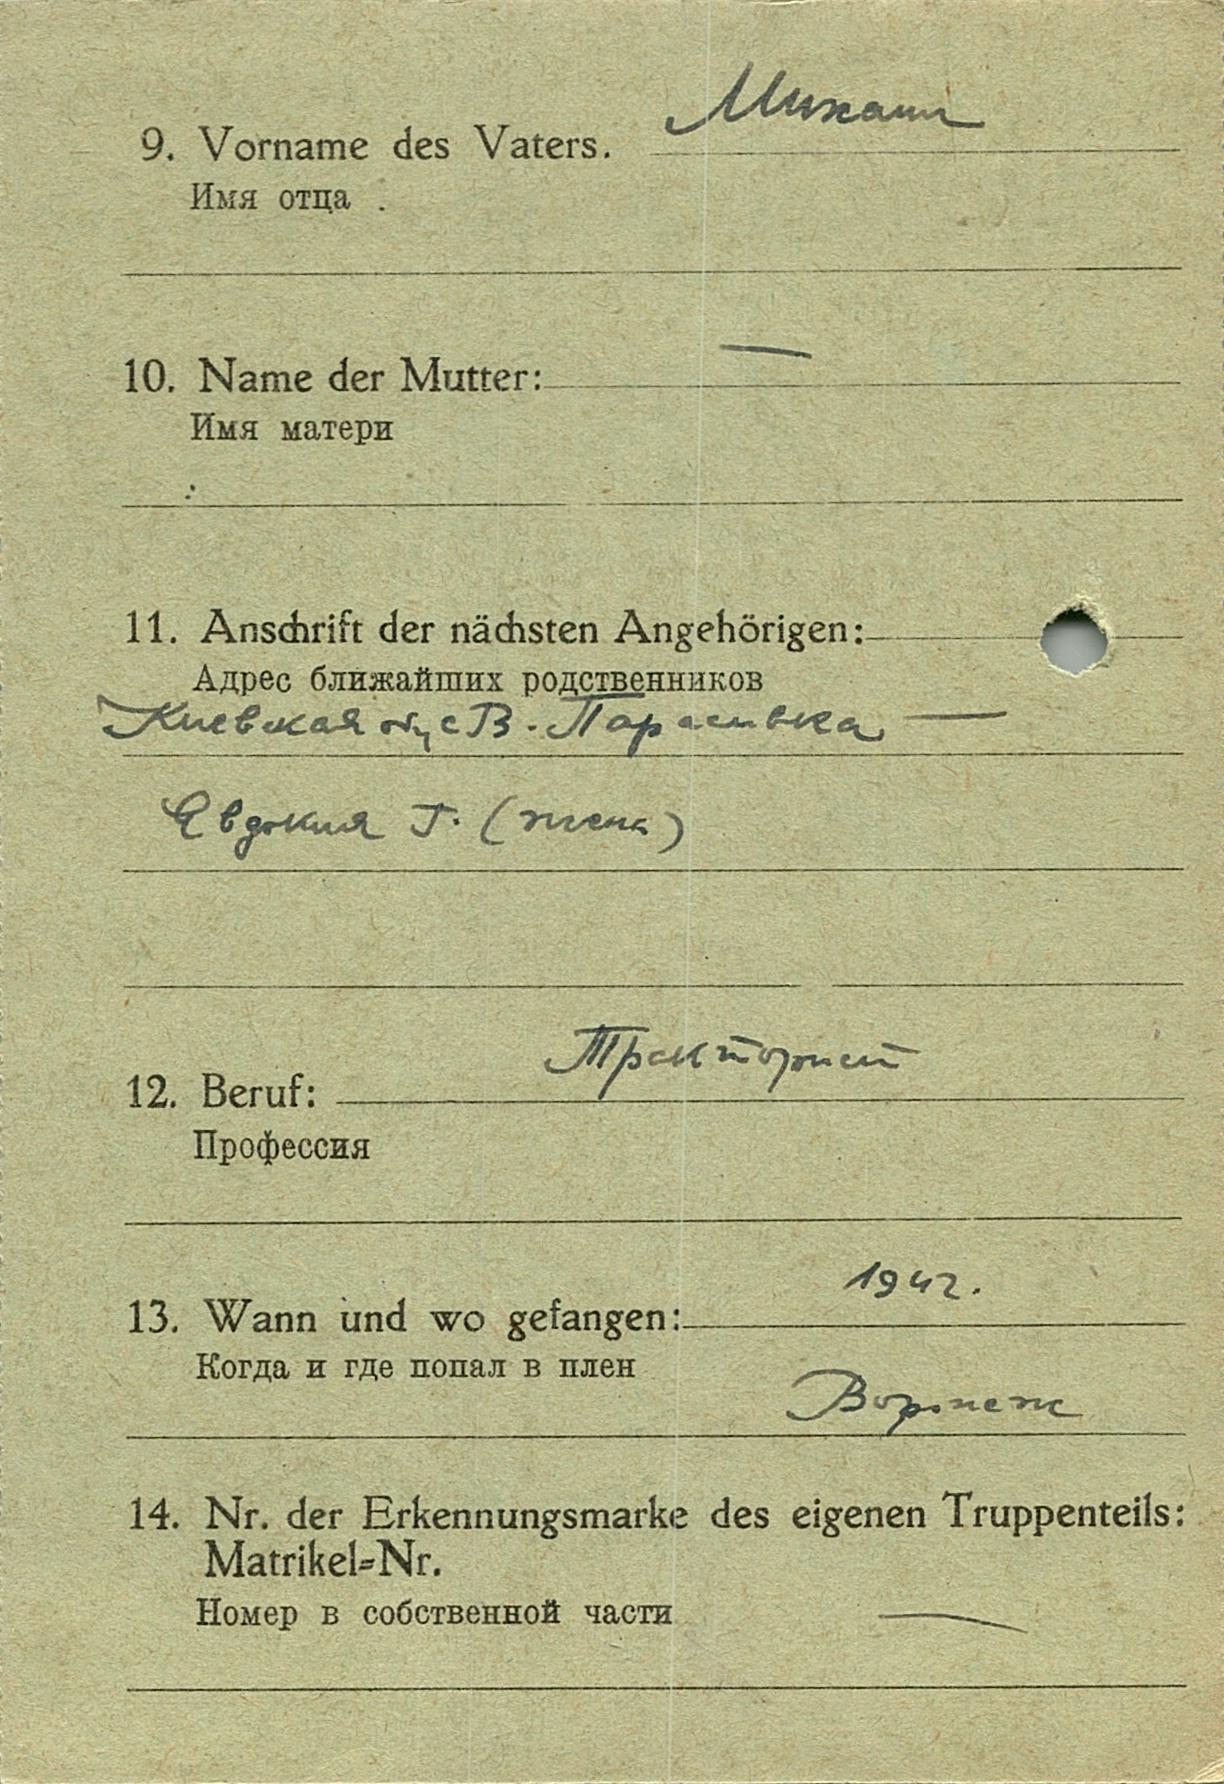 9. Vorname des Vaters. Михаил
Имя отца
10. Name der Mutter: —
Имя матери
11. Anschrift der nächsten Angehörigen:
Адрес ближайших родственников
Киевская обл с В. —
Евдокия Г. (жена)
12. Beruf: Тракторист
Профессия
13. Wann und wo gefangen: 1942.
Когда и где попал в плен
Воронеж
14. Nr. der Erkennungsmarke des eigenen Truppenteils:
Matrikel=Nr.
Номер в собственной части —